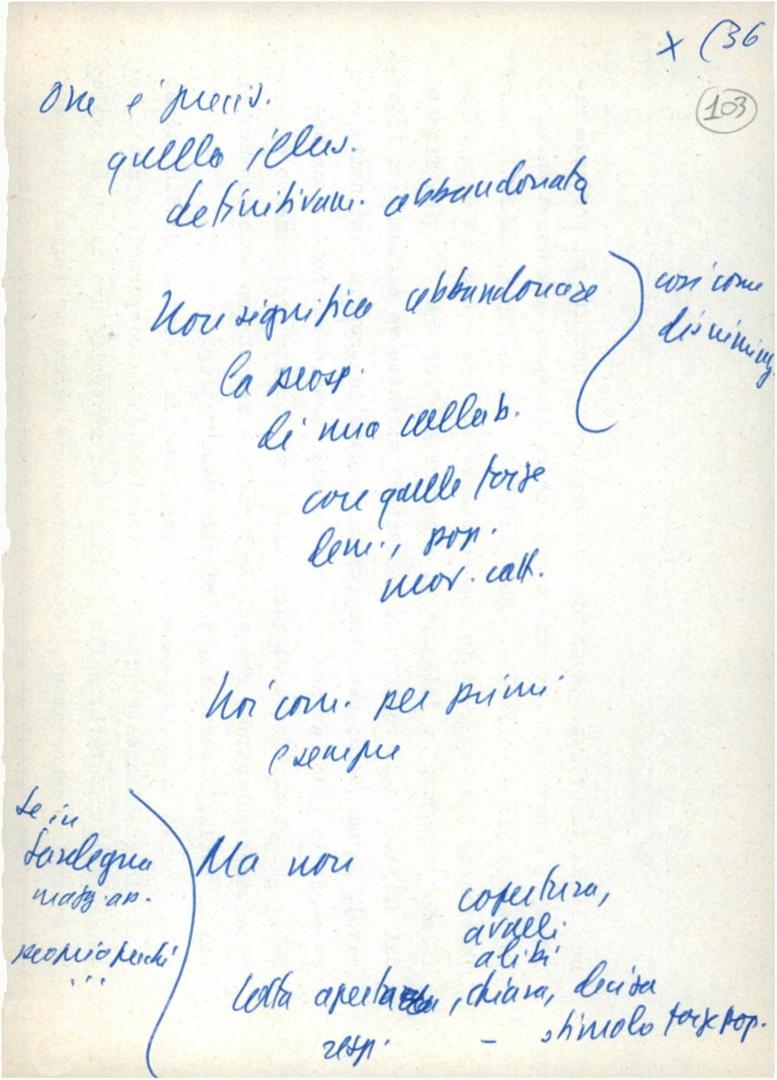 x (36
103
Ora e' precis.
quella illus.
definitivam. abbandonata
Non significa abbandonare
la prosp.
di una collab.
così come
discrimin
con quelle forze
dem., pop.
mov. catt.
Noi com. per primi
e sempre
Se in
Sardegna
magg. an.
proprio perché
...
Ma non
copertura,
avalli
alibi
lotta aperta, chiara, decisa
resp. - stimolo forze pop.